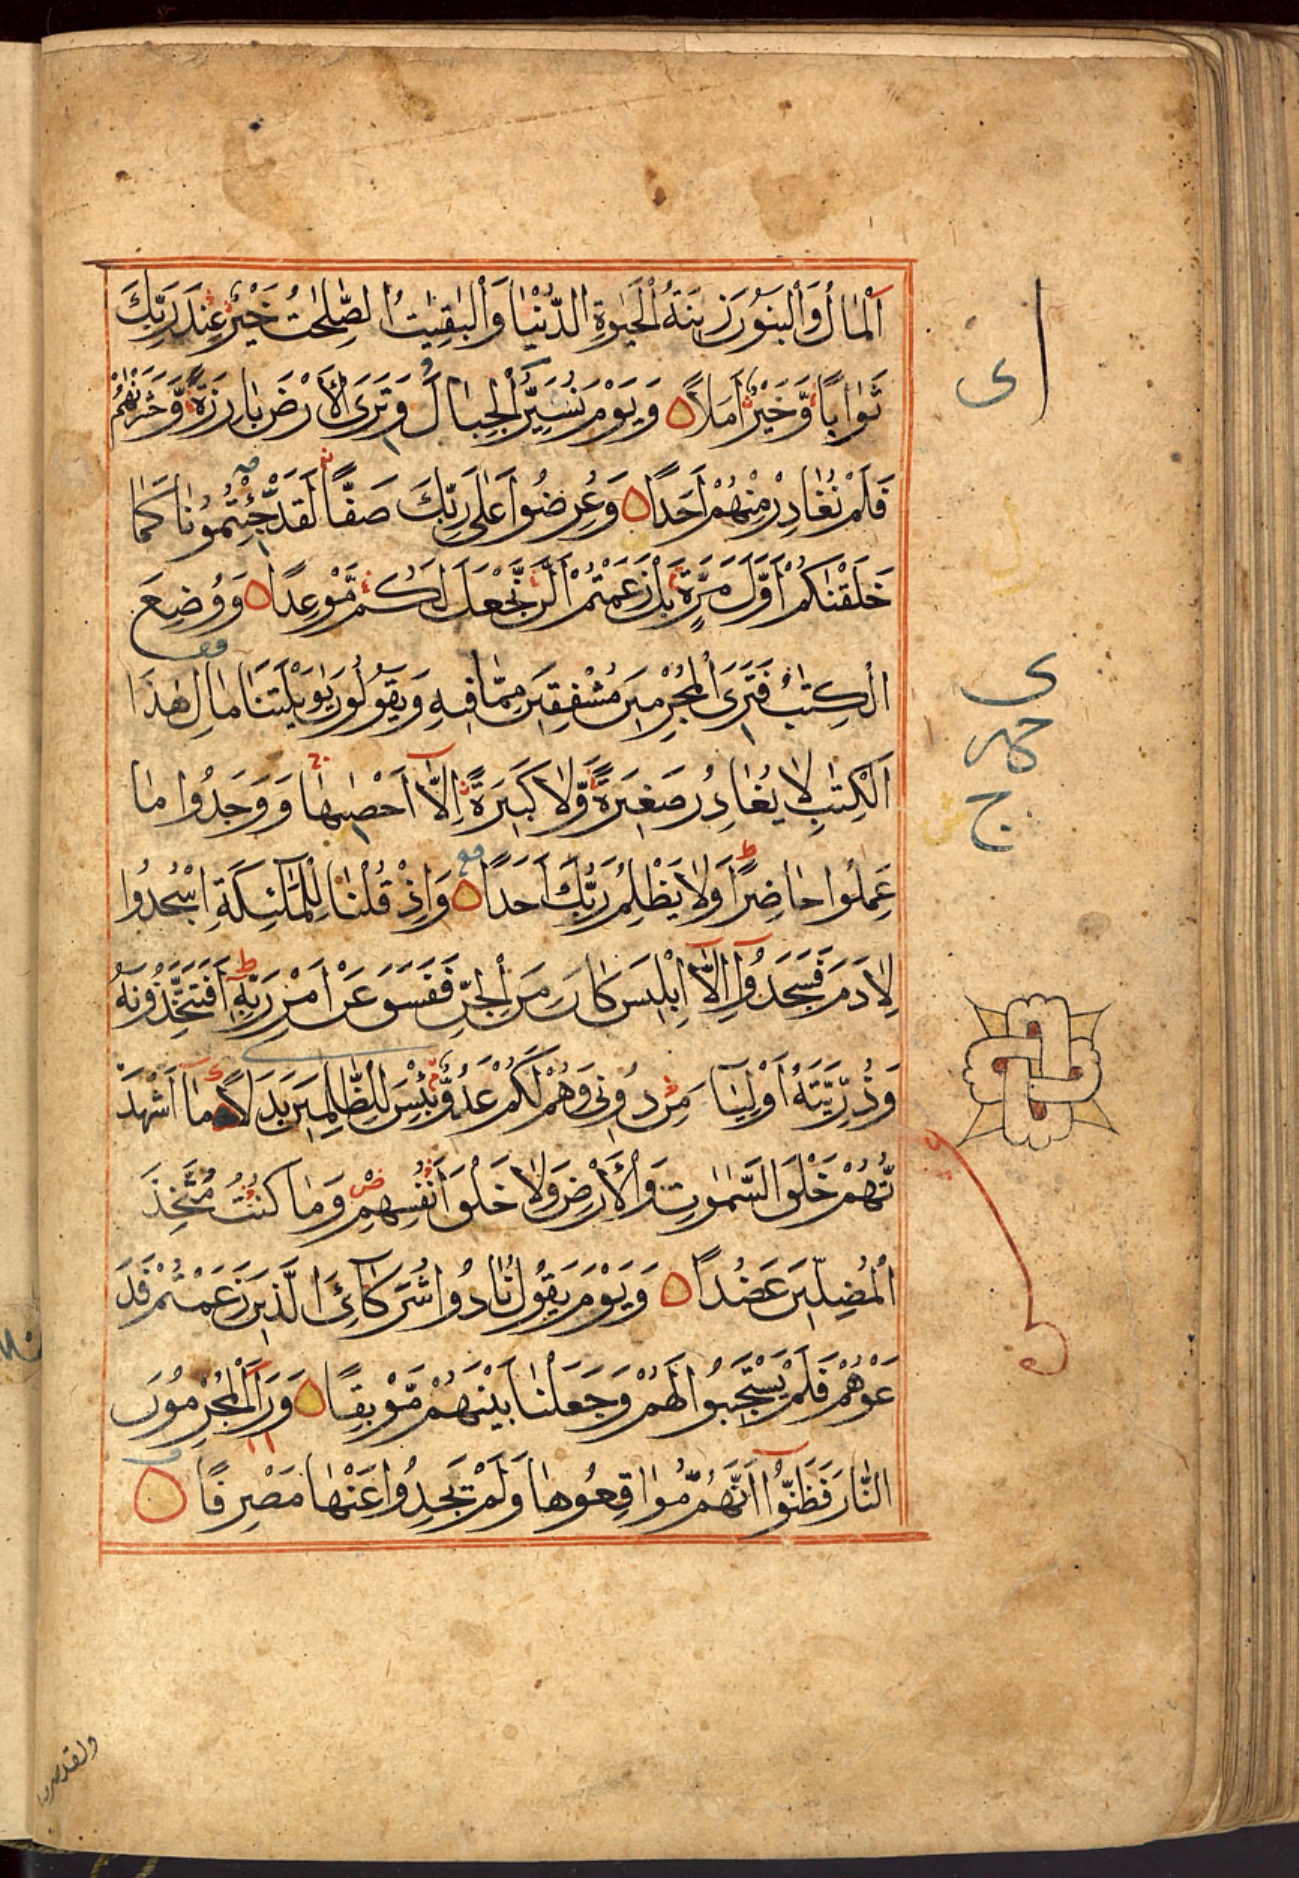 اَلْمَالُ وَالْبَنُونَ زِينَةُ الْحَيٰوةِ الدُّنْيَا وَالْبٰقِيٰتُ الصّٰلِحٰتُ خَيْرٌ عِنْدَ رَبِّكَ
ثَوَابًا وَّخَيْرٌ اَمَلًا وَيَوْمَ نُسَيِّرُ الْجِبَالَ وَتَرَى الْاَرْضَ بَارِزَةً وَّحَشَرْنٰهُمْ
فَلَمْ نُغَادِرْ مِنْهُمْ اَحَدًا وَعُرِضُوا عَلٰى رَبِّكَ صَفًّا لَقَدْ جِئْتُمُونَا كَمَا
خَلَقْنٰكُمْ اَوَّلَ مَرَّةٍ بَلْ زَعَمْتُمْ اَلَّنْ نَّجْعَلَ لَكُمْ مَّوْعِدًا وَوُضِعَ
الْكِتٰبُ فَتَرَى الْمُجْرِمِينَ مُشْفِقِينَ مِمَّا فِيهِ وَيَقُولُونَ يٰوَيْلَتَنَا مَالِ هٰذَا
الْكِتٰبِ لَا يُغَادِرُ صَغِيرَةً وَّلَا كَبِيرَةً اِلَّا اَحْصٰيهَا وَوَجَدُوا مَا
عَمِلُوا حَاضِرًا وَلَا يَظْلِمُ رَبُّكَ اَحَدًا وَاِذْ قُلْنَا لِلْمَلٰٓئِكَةِ اسْجُدُوا
لِاٰدَمَ فَسَجَدُوا اِلَّا اِبْلِيسَ كَانَ مِنَ الْجِنِّ فَفَسَقَ عَنْ اَمْرِ رَبِّهٖ اَفَتَتَّخِذُونَهُ
وَذُرِّيَّتَهُ اَوْلِيَآ مِنْ دُونِى وَهُمْ لَكُمْ عَدُوٌّ بِئْسَ لِلظّٰلِمِينَ بَدَلًا مَا اَشْهَدْ
تُّهُمْ خَلْقَ السَّمٰوٰتِ وَالْاَرْضِ وَلَا خَلْقَ اَنْفُسِهِمْ وَمَا كُنْتُ مُتَّخِذَ
الْمُضِلِّينَ عَضُدًا وَيَوْمَ يَقُولُ نَادُوا شُرَكَآئِىَ الَّذِينَ زَعَمْتُمْ فَدَ
عَوْهُمْ فَلَمْ يَسْتَجِيبُوا لَهُمْ وَجَعَلْنَا بَيْنَهُمْ مَّوْبِقًا وَرَاَ الْمُجْرِمُونَ
النَّارَ فَظَنُّوا اَنَّهُمْ مُّوَاقِعُوهَا وَلَمْ يَجِدُوا عَنْهَا مَصْرِفًا
ولقد صرفنا